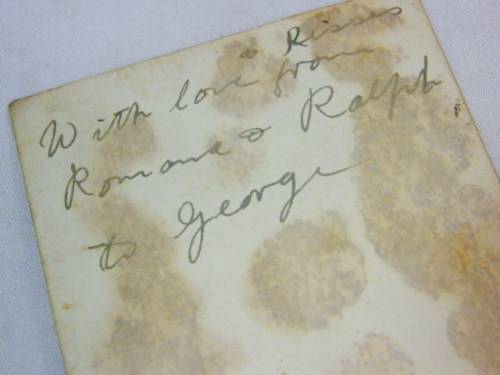 With love & Kisses
from
Romana & Ralph
to George